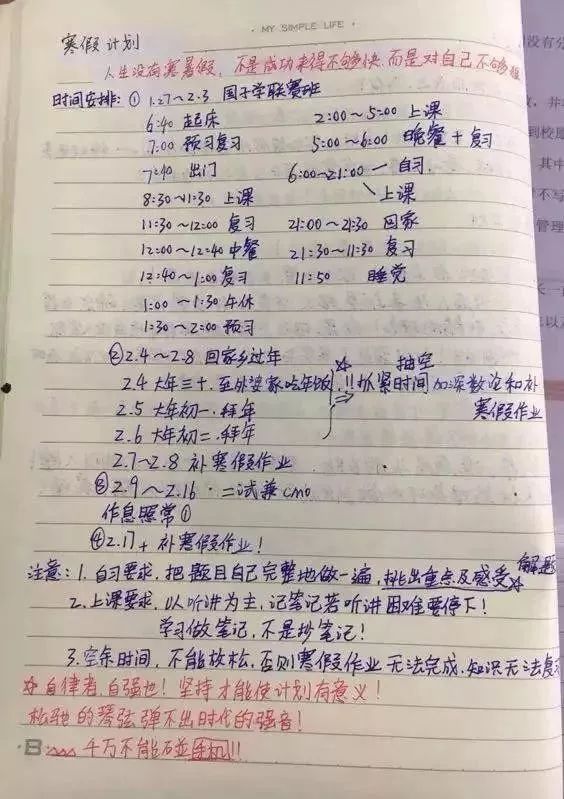 · MY SIMPLE LIFE ·
寒假计划
人生没有寒暑假，不是成功来得不够快而是对自己不够狠
时间安排：① 1.27～2.3 国子学联赛班
6:40 起床 2:00～5:00 上课
7:00 预习复习 5:00～6:00 晚餐＋复习
7:40 出门 6:00～21:00 — 自习
8:30～11:30 上课 上课
11:30～12:00 复习 21:00～21:30 回家
12:00～12:40 中餐 21:30～11:30 复习
12:40～1:00 复习 11:50 睡觉
1:00～1:30 午休
1:30～2:00 预习
② 2.4～2.8 回家乡过年 抽空
2.4 大年三十．至外婆家吃年饭 !! 抓紧时间加深数论和补
2.5 大年初一．拜年 寒假作业
2.6 大年初二．拜年
2.7～2.8 补寒假作业
③ 2.9～2.16．二试兼cmo
作息照常①
④ 2.17+ 补寒假作业！
注意：1. 自习要求，把题目自己完整地做一遍，挑出重点及感受 解题
2. 上课要求，以听讲为主，记笔记若听讲困难要停下！
学习做笔记，不是抄笔记！
3. 空余时间，不能放松，否则寒假作业无法完成，知识无法复
☆ 自律者，自强也！坚持才能使计划有意义！
松弛的琴弦弹不出时代的强音！
·B: 千万不能碰手机!!
没有分
到校
其中
不写
管理